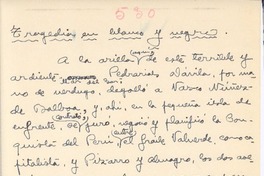 530
Tragedia en blanco y negro.
A la orilla de este terrible y
ardiente mar del Sur, Pedrarias Dávila, por ma
no de verdugo, degolló a Vasco Núñez
de Balboa; y, ahí, en la pequeña isla de
enfrente, se juró, negoció y planificó la Con-
quista del Perú, entre el fraile Valverde, como ca
pitalista, y Pizarro y Almagro, los dos